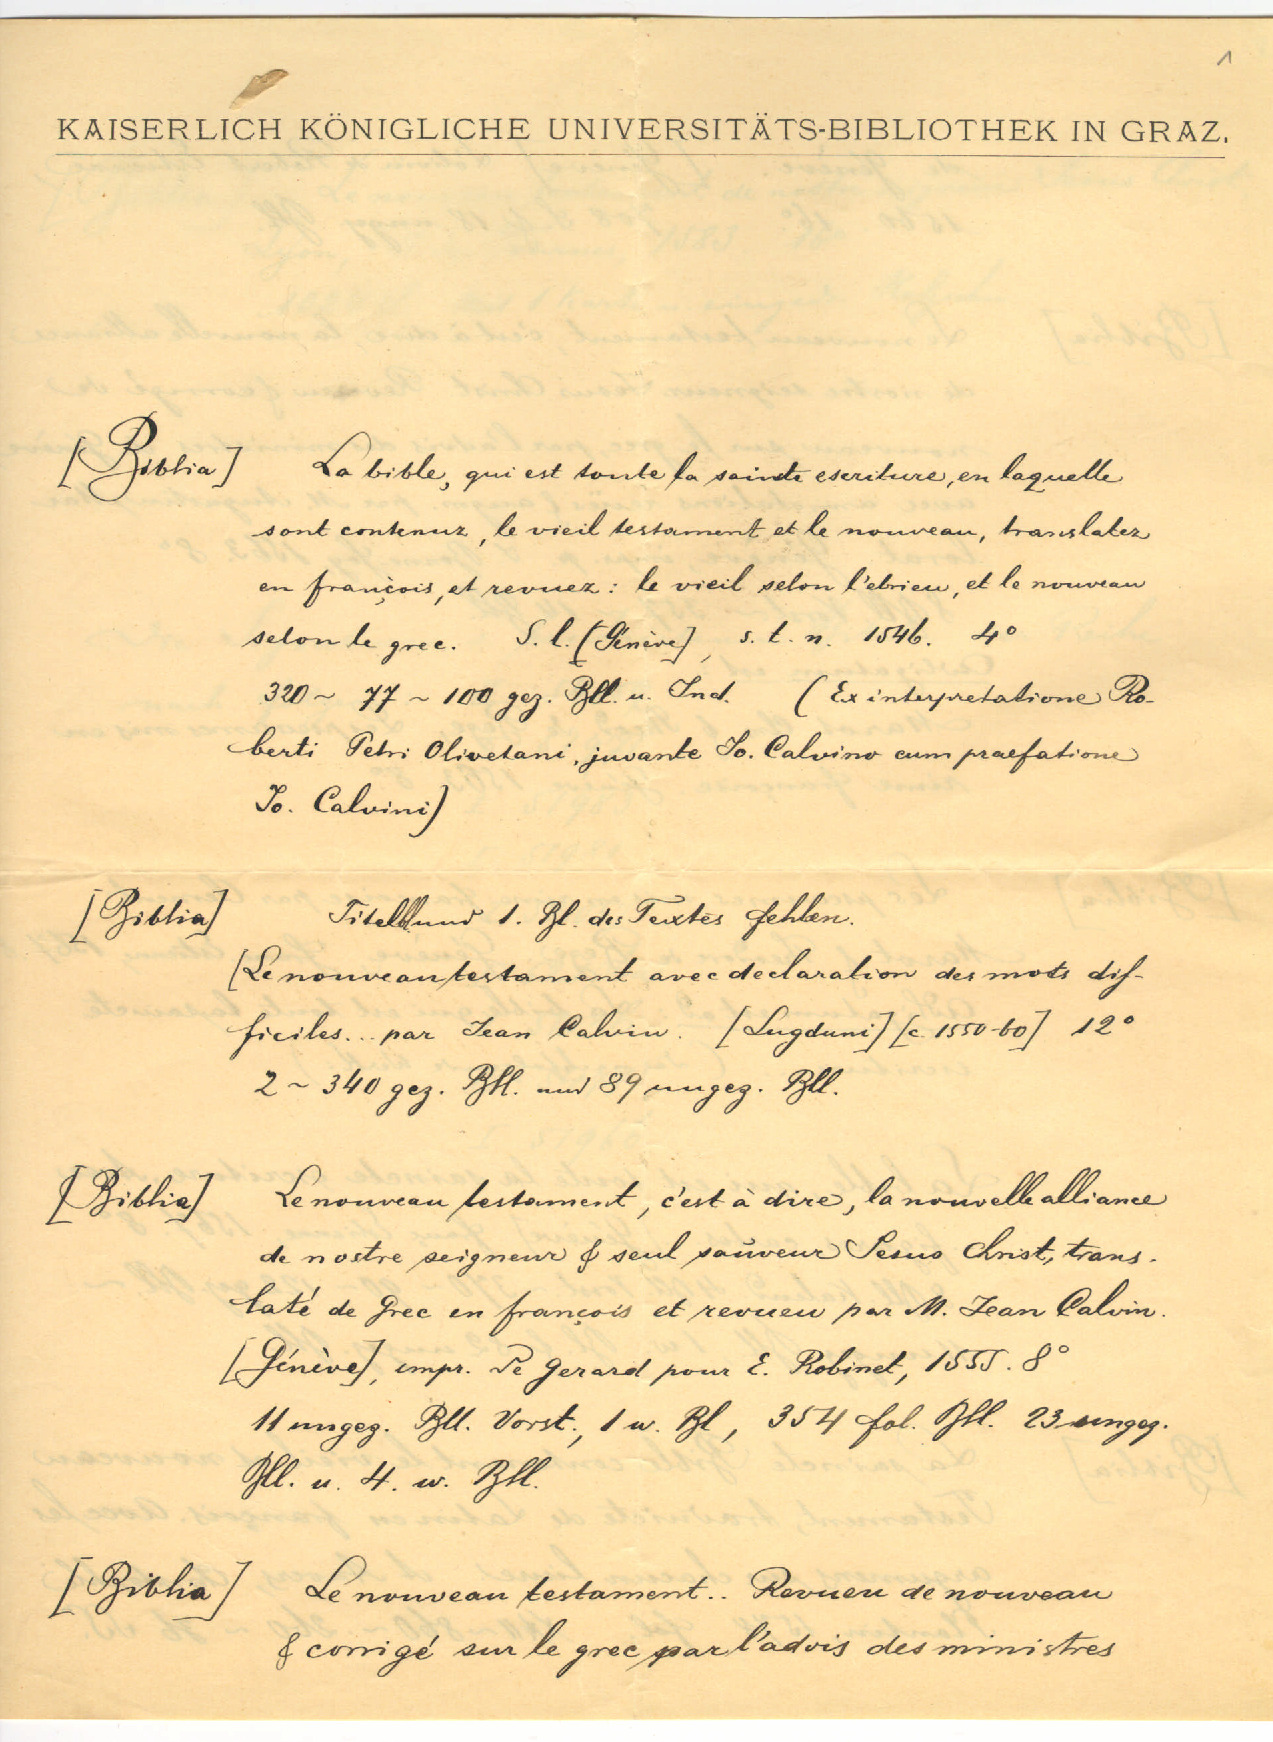 1
KAISERLICH KÖNIGLICHE UNIVERSITÄTS-BIBLIOTHEK IN GRAZ.
[Biblia] La bible, qui est toute la sainte escriture, en laquelle
sont contenuz, le vieil testament et le nouveau, translatez
en françois, et revuez: le vieil selon l'ebrieu, et le nouveau
selon le grec. S. l. [Génève], s. t. n. 1546. 4°
320 ~ 77 ~ 100 gez. Bll. u. Ind. (Ex interpretatione Ro-
berti Petri Olivetani, juvante Jo. Calvino cum praefatione
Jo. Calvini)
[Biblia] Titelbl und 1. Bl. des Textes fehlen.
[Le nouveau testament avec declaration des mots dif-
ficiles... par Jean Calvin. [Lugduni] [c. 1550-60] 12°
2 ~ 340 gez. Bll. und 89 ungez. Bll.
[Biblia] Le nouveau testament, c'est à dire, la nouvelle alliance
de nostre seigneur & seul sauveur Jesus Christ, trans-
laté de Grec en françois et revueu par M. Jean Calvin.
[Génève], impr. Pe Gerard pour E. Robinet, 1555. 8°
11 ungez. Bll. Vorst., 1 w. Bl, 354 fol. Bll. 23 ungez.
Bll. u. 4. w. Bll.
[Biblia] Le nouveau testament.. Revueu de nouveau
& corrigé sur le grec par l'advis des ministres